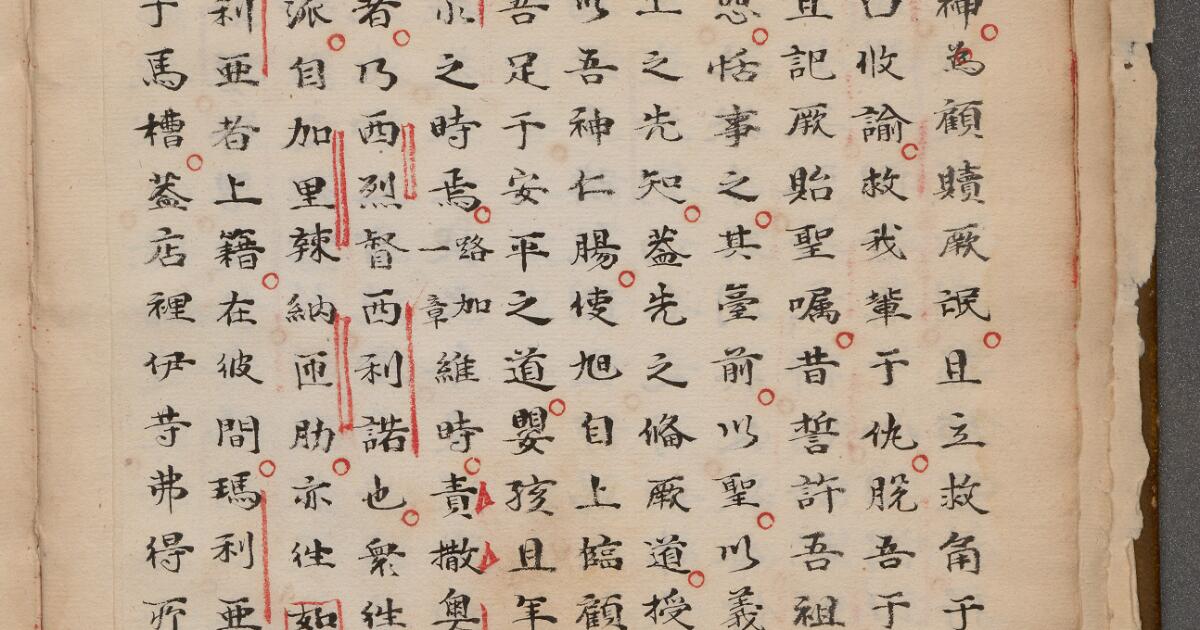 神。為顧贖厥氓。且立救角于
口攸諭。救我輩于仇。脫吾于
且記厥貽聖囑。昔誓許吾祖
恐。恬事之。其臺前。以聖。以義
上之先知。葢先之脩厥道。授
以吾神仁腸。使旭自上臨顧
吾足于安平之道。嬰孩且年
之時焉。路加一章維時。責撒奥
者。乃西烈督西利諾也。衆徃
派。自加里辣納匝肋。亦徃如
利亜者上籍。在彼間。瑪利亜
于馬槽。葢店裡伊等弗得所